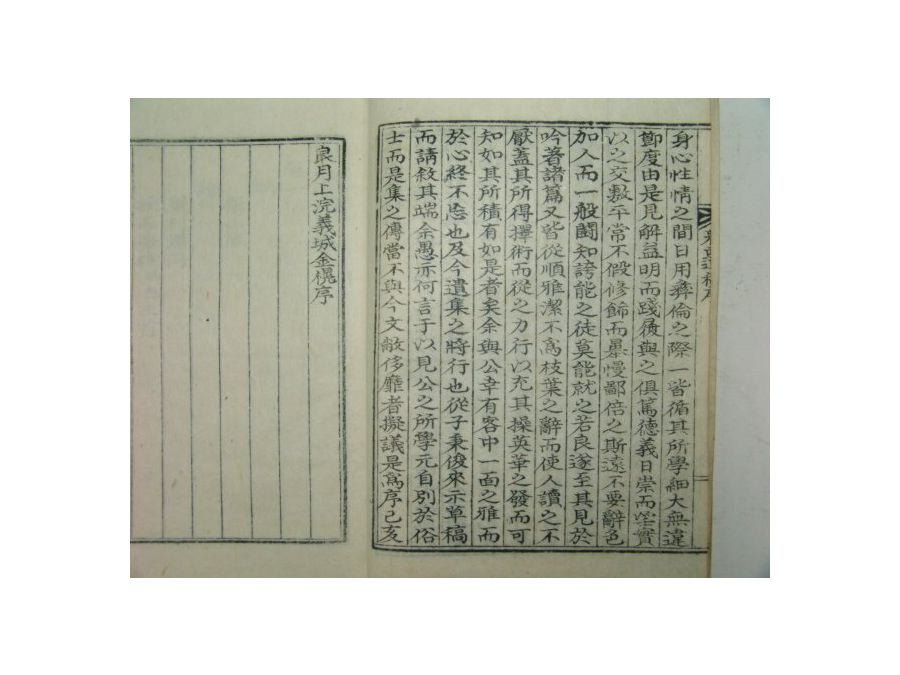 身心性情之間日用彛倫之際一皆循其所學細大無違
鄭度由是見解益明而踐履與之俱篤德義日崇而望實
以之交敷平常不假修飾而暴慢鄙倍之斯遠不要辭色
加人而一般鬪知誇能之徒莫能就之若良遂至其見於
吟著諸篇又皆從順雅潔不爲枝葉之辭而使人讀之不
厭蓋其所得擇術而從之力行以充其操英華之發而可
知如其所積有如是者矣余與公幸有客中一面之雅而
於心終不忘也及今遺集之將行也從子秉俊來示草稿
而請敘其端余愚亦何言于以見公之所學元自別於俗
士而是集之傳當不與今文敝侈靡者擬議是爲序己亥
良月上浣義城金榥序